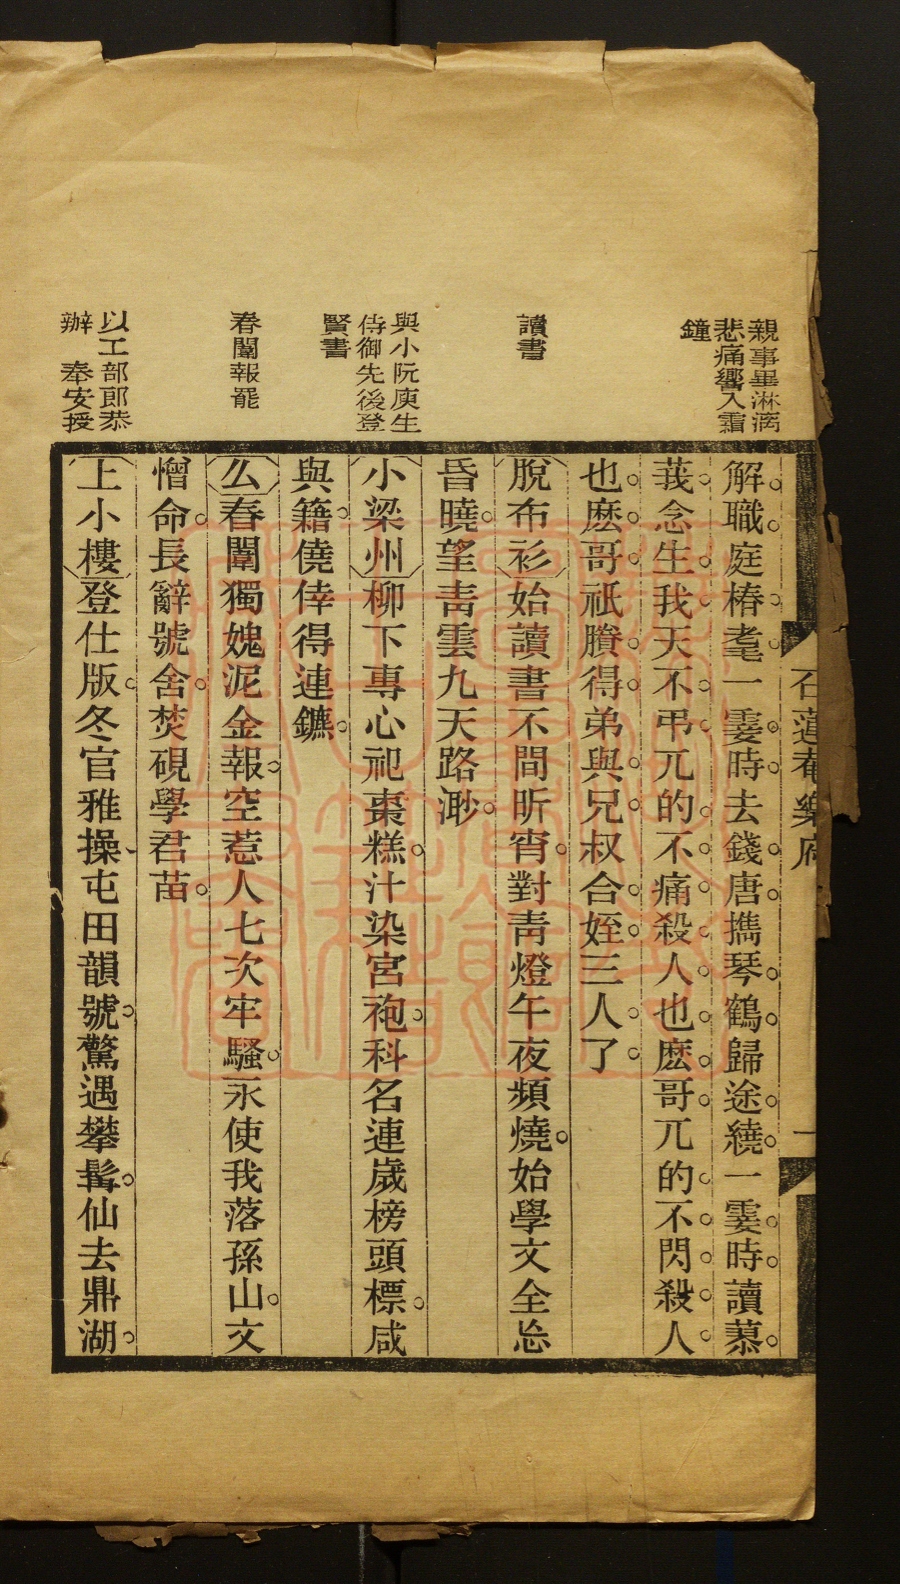 親事畢淋漓
悲痛響入霜
鐘
讀書
與小阮庚生
侍御先後登
賢書
春闈報罷
以工部郎恭
辦　奉安授
解職庭椿耄一霎時去錢唐攜琴鶴歸途繞一霎時讀蓼
莪念生我天不弔兀的不痛殺人也麽哥兀的不閃殺人
也麽哥祇賸得弟與兄叔合姪三人了
脫布衫始讀書不間昕宵對靑燈午夜頻燒始學文全忘
昏曉望靑雲九天路渺
小梁州柳下專心祀棗糕汁染宮袍科名連歲榜頭標咸
與籍僥倖得連鑣
么春闈獨媿泥金報空惹人七次牢騷永使我落孫山文
憎命長辭號舍焚硯學君苗
上小樓登仕版冬官雅操屯田韻號驚遇攀髯仙去鼎湖
石蓮菴樂府
一